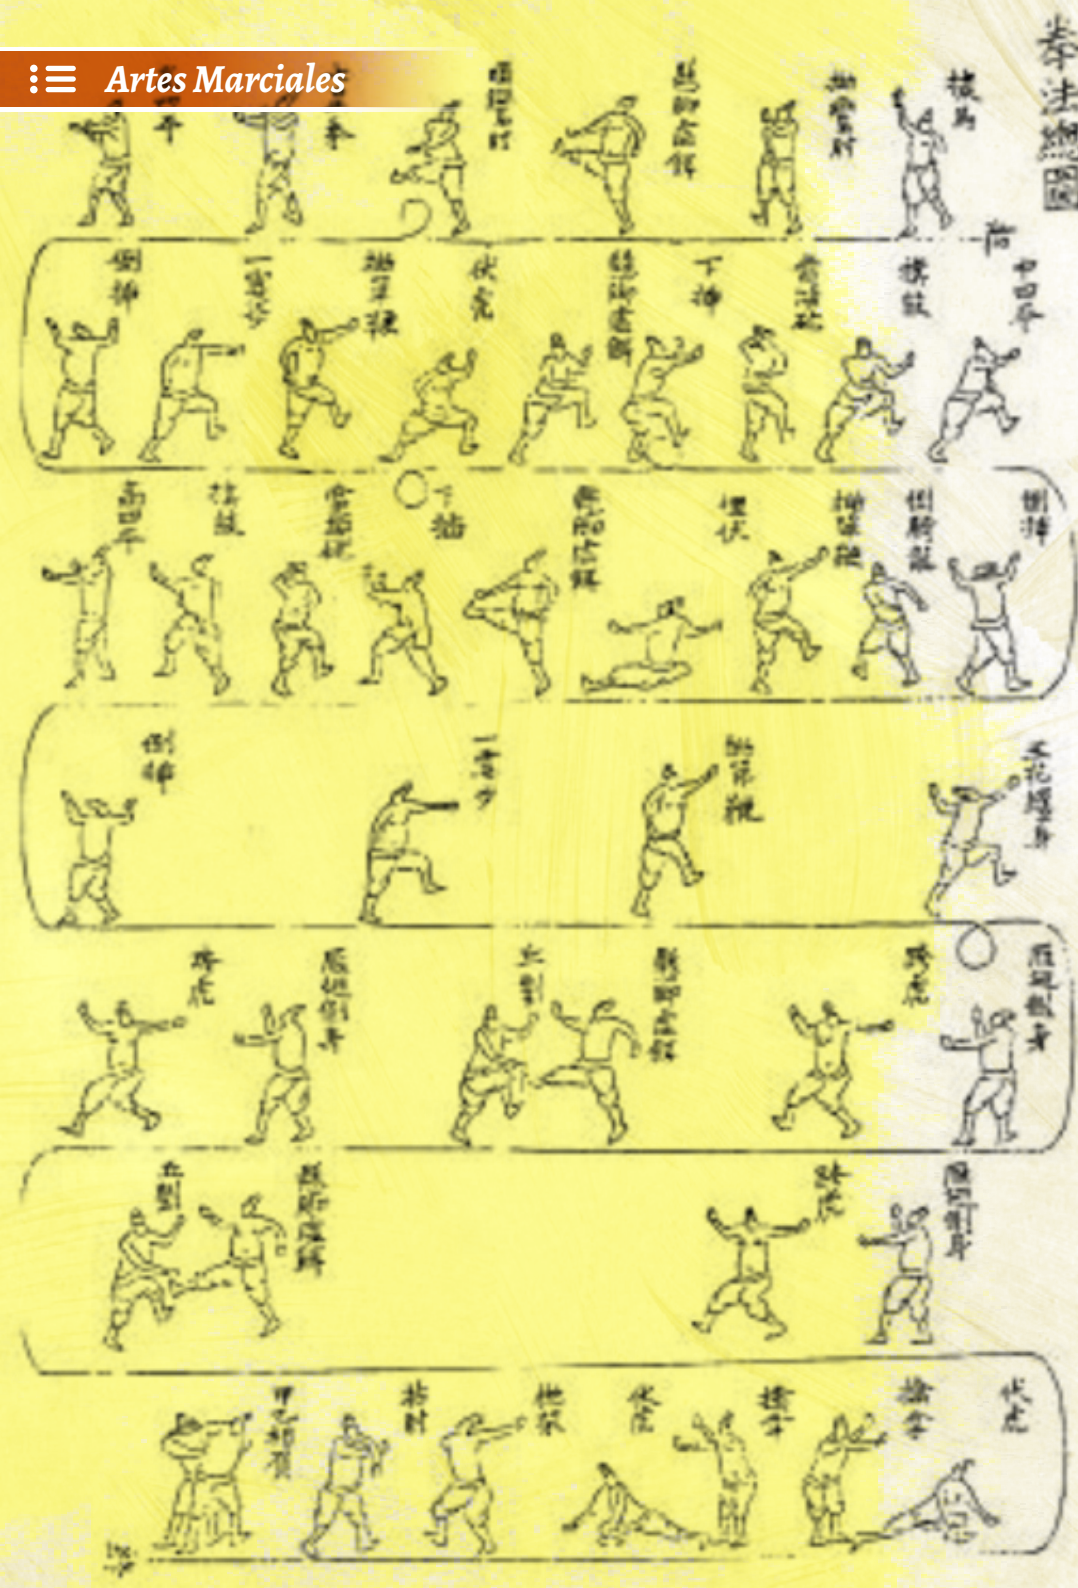 Artes Marciales
拳法總圖
探馬
拗鸞肘
懸脚虛餌
順鸞肘
中四平
旗鼓
當頭砲
下揷
懸脚虛餌
伏虎
拗單鞭
一霎步
倒揷
倒揷
倒騎龍
拗單鞭
埋伏
懸脚虛餌
下揷
當頭砲
旗鼓
高四平
五花纏身
拗單鞭
一霎步
倒揷
雁翅側身
跨虎
懸脚虛餌
丘劉
雁翅側身
跨虎
雁翅側身
跨虎
懸脚虛餌
丘劉
伏虎
擒拿
擒拿
伏虎
抛架
拈肘
甲乙相負